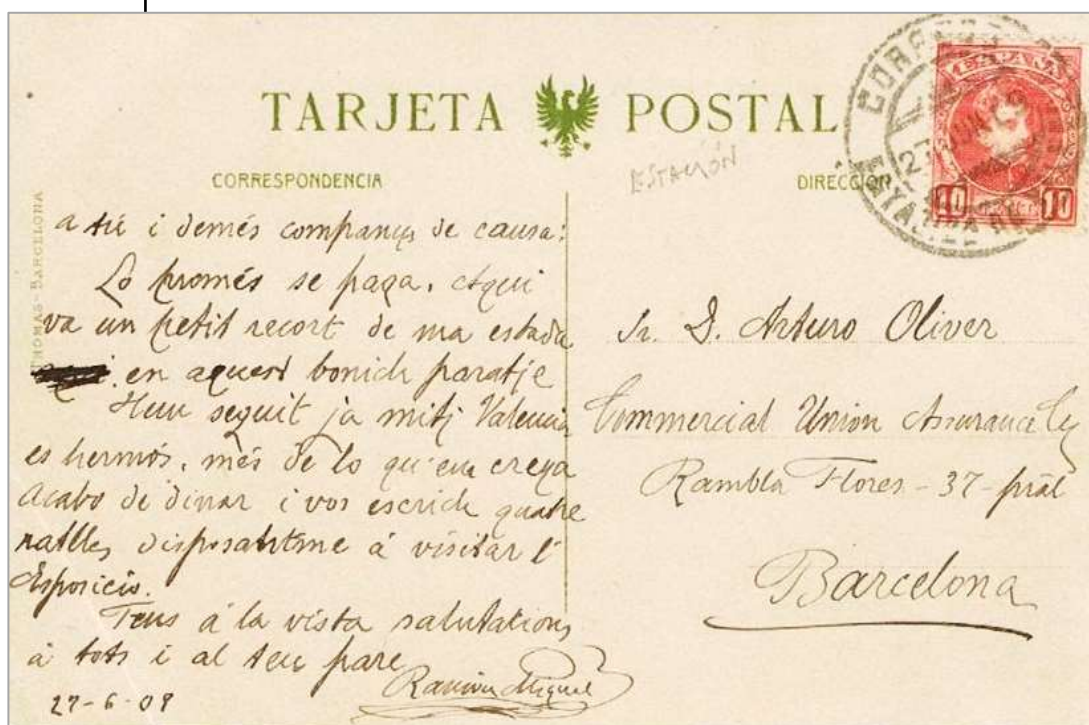 TARJETA POSTAL
ESTACIÓN
CORRESPONDENCIA
DIRECCIÓN
THOMAS - BARCELONA
ESPAÑA
10 10
CORREOS
27 JUN
a tú i demés companys de causa:
Lo promés se paga. Aqui
va un petit recort de ma estada
en aquest bonich paratje
Hem seguit ja mitj Valencia
es hermós, més de lo qu'em creya
Acabo de dinar i vos escrich quatre
ratlles disposantme á visitar l'
Esposició.
Fins á la vista salutations
á tots i al teu pare
Ramon Miquel
27-6-09
Sr. D. Arturo Oliver
Commercial Union Assurance Cy
Rambla Flores - 37 - pral
Barcelona